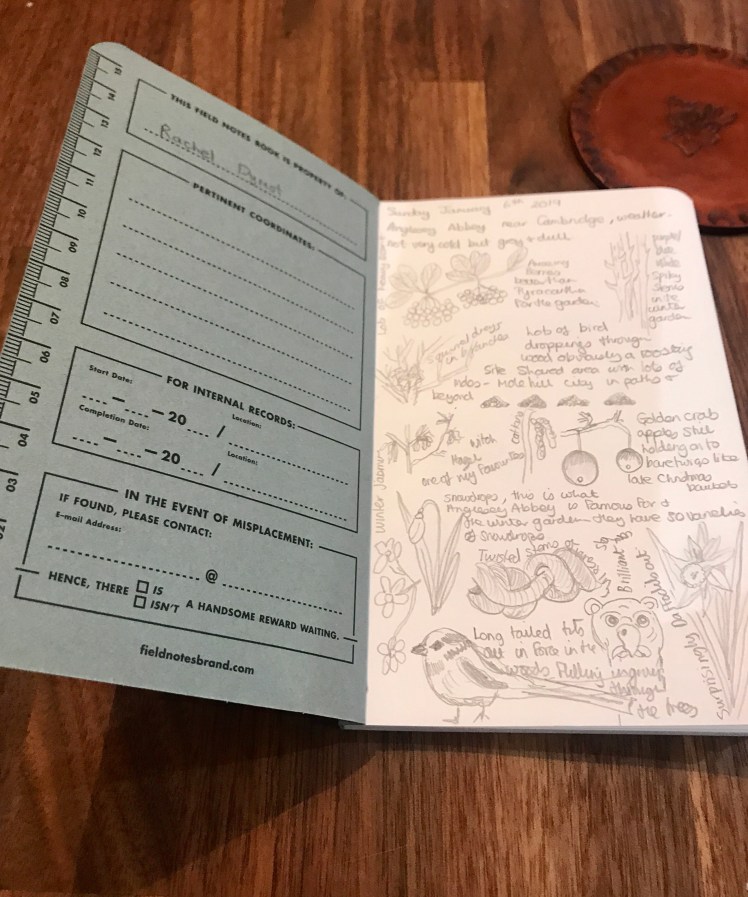 15
14
13
12
11
10
09
08
07
06
05
04
03
02
THIS FIELD NOTES BOOK IS PROPERTY OF:
Rachel
PERTINENT COORDINATES:
FOR INTERNAL RECORDS:
Start Date:
Location:
– – 20 /
Completion Date:
Location:
– – 20 /
IN THE EVENT OF MISPLACEMENT:
IF FOUND, PLEASE CONTACT:
E-mail Address:
@
HENCE, THERE IS
ISN'T A HANDSOME REWARD WAITING.
fieldnotesbrand.com
Sunday January 6th 2019
Anglesey Abbey near Cambridge, weather
not very cold but grey & dull
Amazing
Berries
Pyracantha
garden
purple/
blue
white
Spiky
stems
in the
winter
garden
Squirrel dreys
in branches
Lots of bird
droppings through
wood obviously a roosting
site Shared area with lots of
moles - Mole hill city in paths &
beyond
Winter Jasmin
Witch
Hazel
one of my favourites
Catkins
Golden crab
apples still
holding on to
bare twigs like
late Christmas
baubles
snowdrops, this is what
Anglesey Abbey is famous for &
the winter garden they have 50 varieties
of snowdrops
Twisted stems of
Brilliant
Surprisingly Daffodils out
Long tailed tits
out in force in the
woods flitting
through
the trees